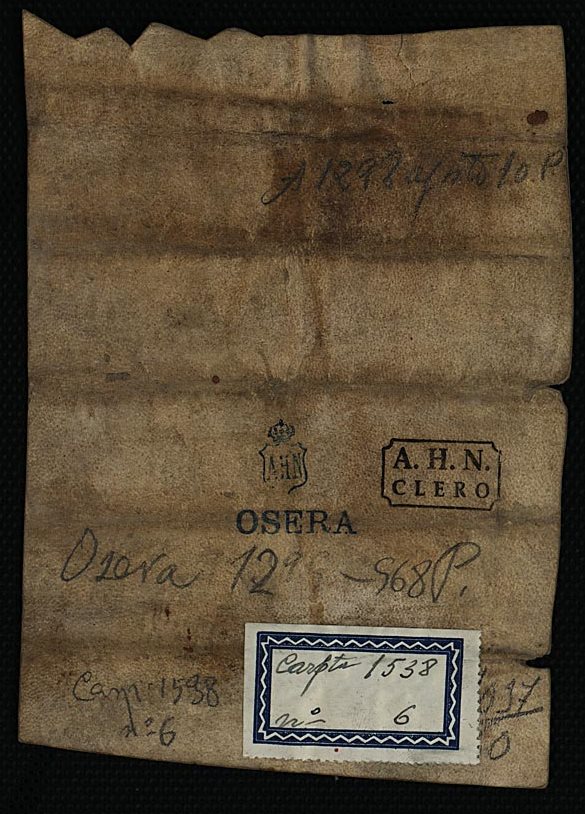 A 1292 agosto 10 P
AHN
A. H. N.
CLERO
OSERA
Osera 129 - 968 P.
Carpta 1538
nº 6
Carp. 1538
nº 6
937
0